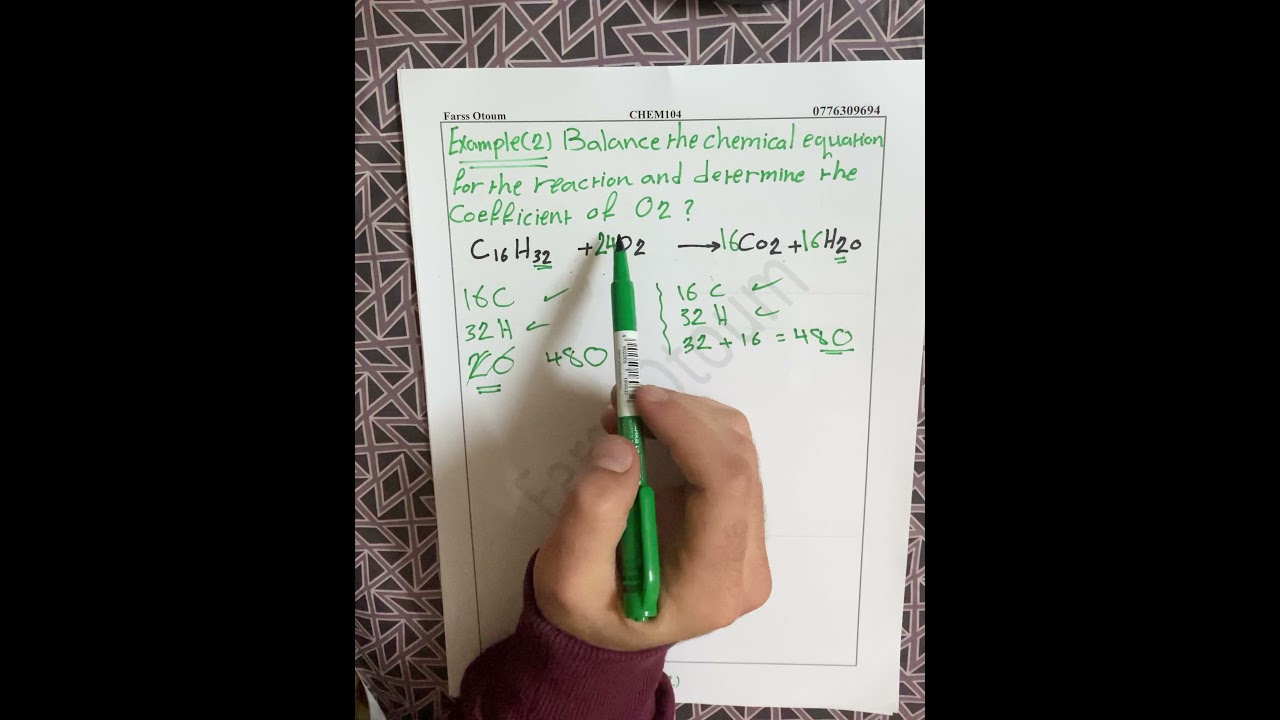 Farss Otoum CHEM104 0776309694
Example(2) Balance the chemical equation
for the reaction and determine the
Coefficient of O2 ?
C16H32 + 24O2 → 16CO2 + 16H2O
16C ✓ 16 C ✓
32H ✓ 32 H ✓
2O 48O 32 + 16 = 48O
Farss Otoum